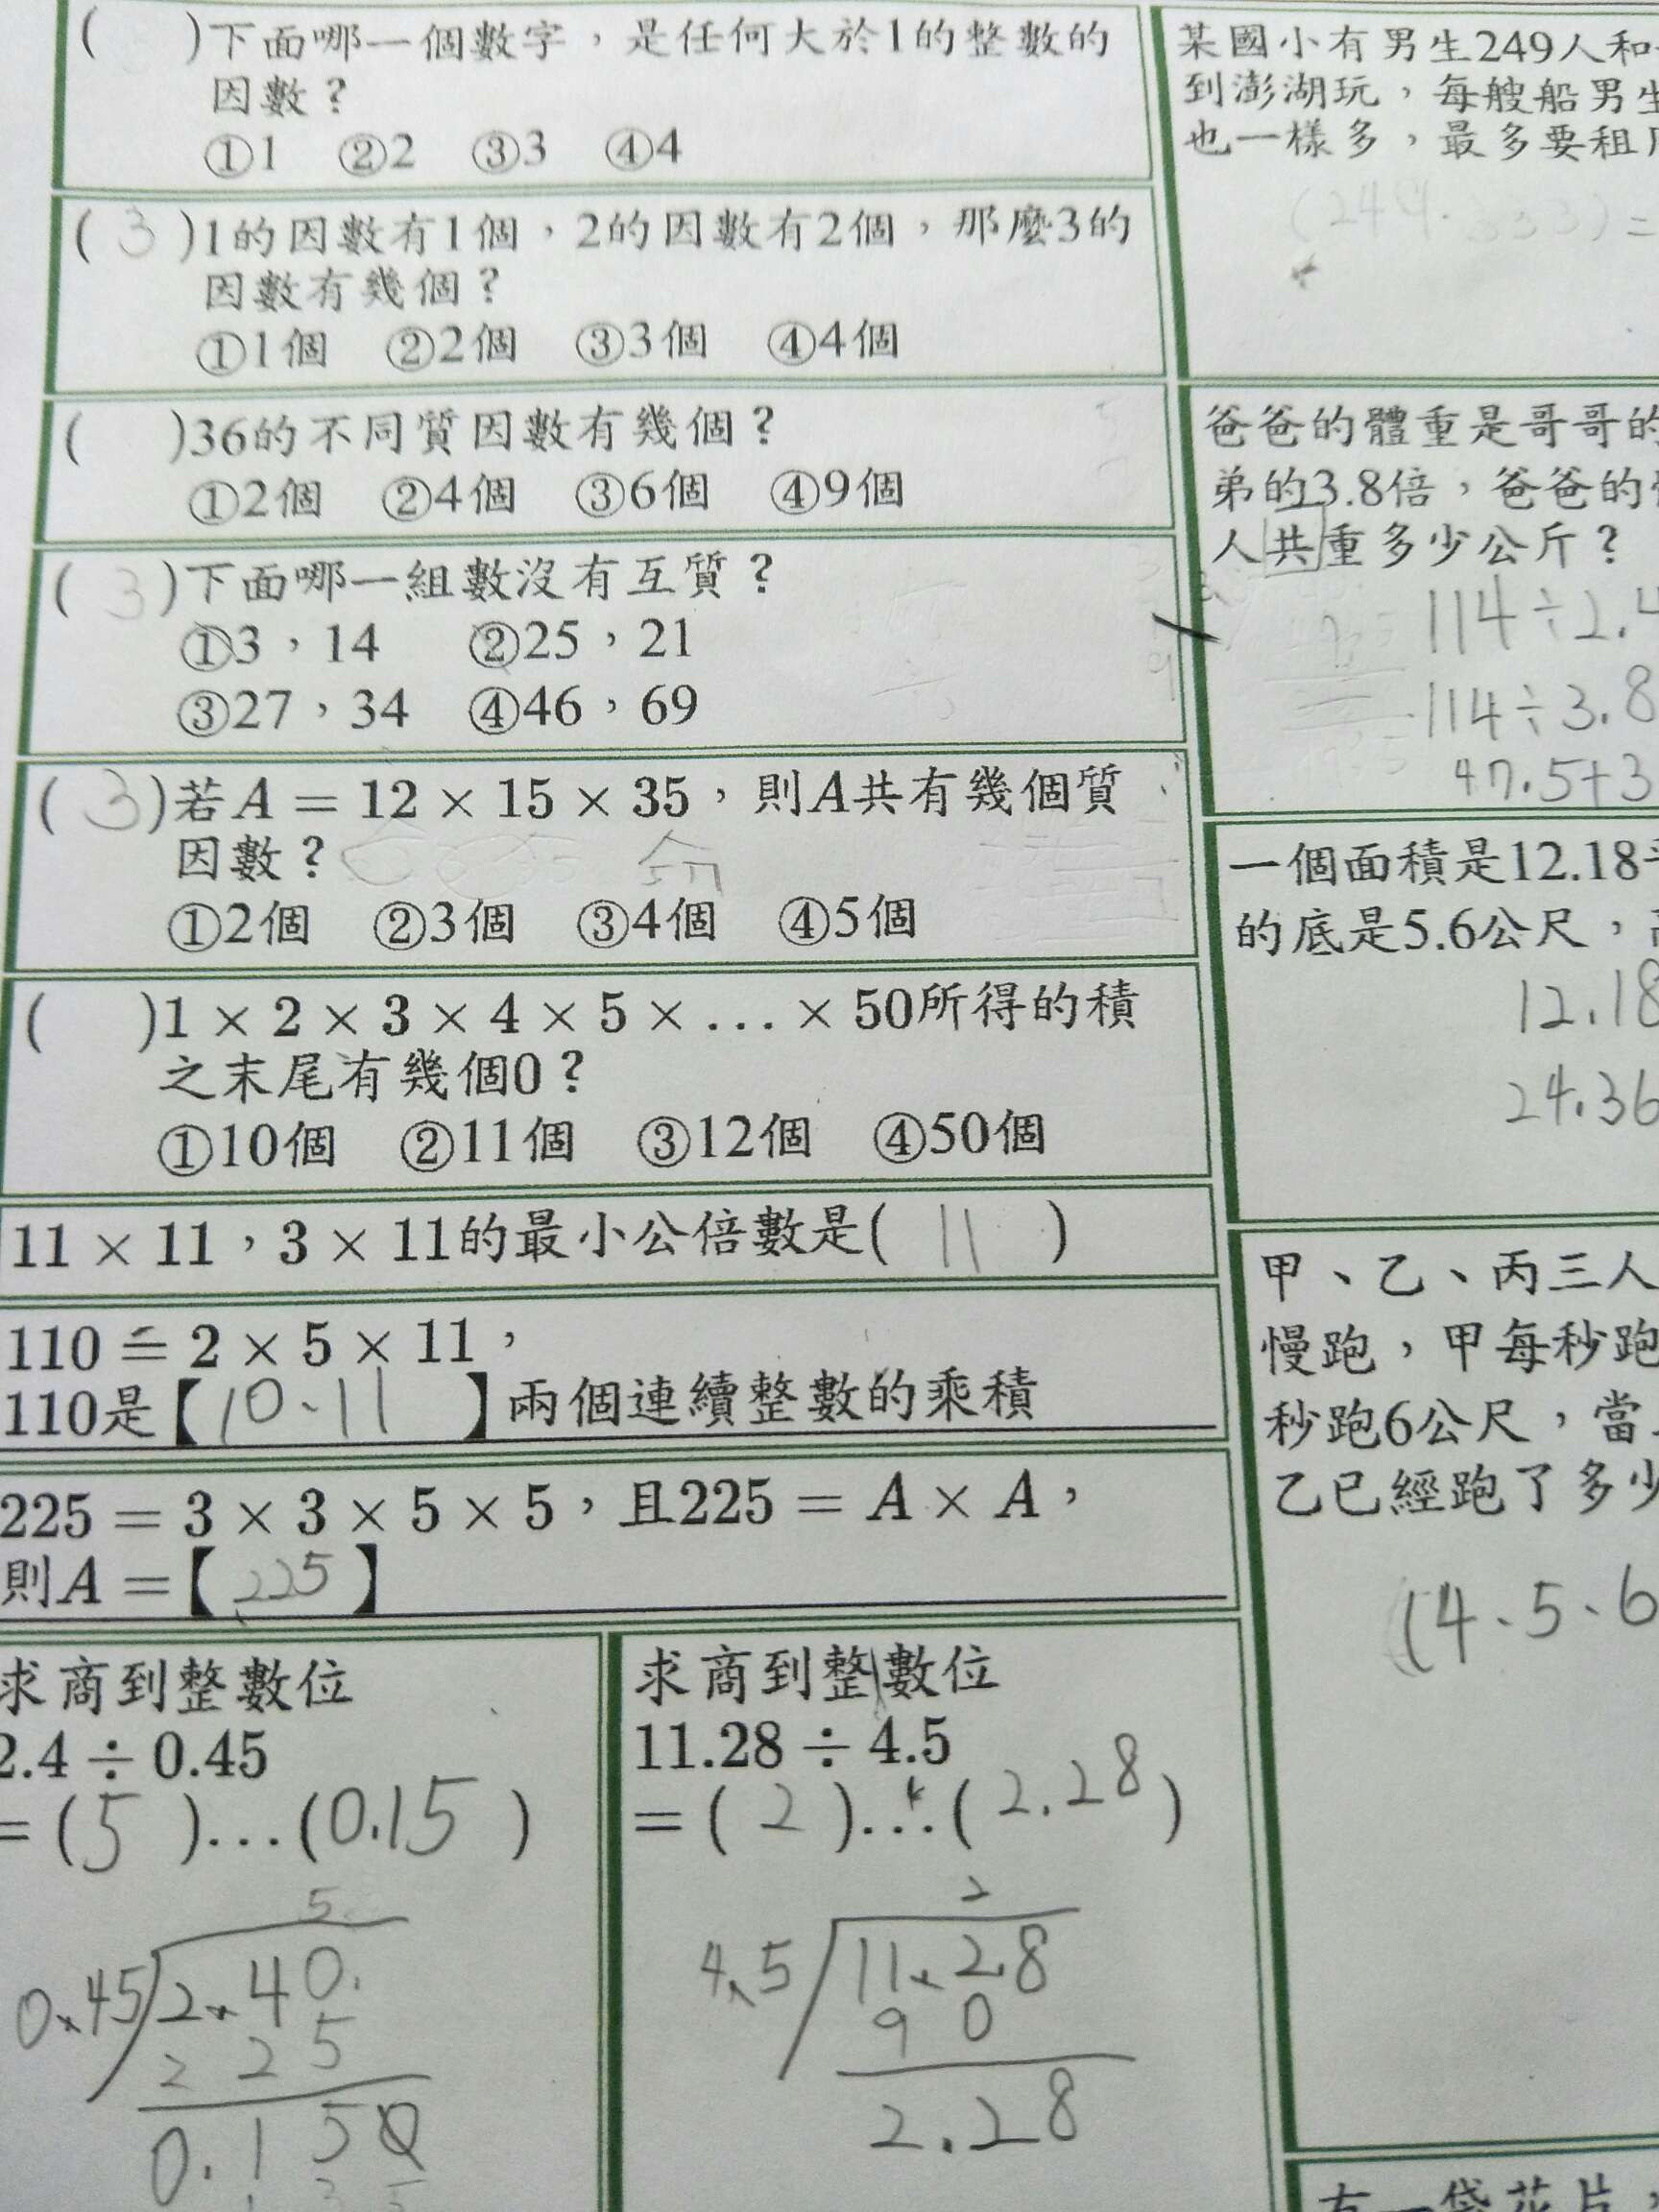 (　)下面哪一個數字，是任何大於1的整數的
因數？
①1　②2　③3　④4
(3)1的因數有1個，2的因數有2個，那麼3的
因數有幾個？
①1個　②2個　③3個　④4個
(　)36的不同質因數有幾個？
①2個　②4個　③6個　④9個
(3)下面哪一組數沒有互質？
①3，14　②25，21
③27，34　④46，69
(3)若A = 12 × 15 × 35，則A共有幾個質
因數？
①2個　②3個　③4個　④5個
(　)1 × 2 × 3 × 4 × 5 × ... × 50所得的積
之末尾有幾個0？
①10個　②11個　③12個　④50個
11 × 11，3 × 11的最小公倍數是( 11 )
110 = 2 × 5 × 11，
110是【10、11】兩個連續整數的乘積
225 = 3 × 3 × 5 × 5，且225 = A × A，
則A =【225】
求商到整數位
2.4 ÷ 0.45
= (5)...(0.15)
5
0.45 2.40.
2 2 5
0.1 5 0
求商到整數位
11.28 ÷ 4.5
= (2)...(2.28)
2
4.5 11.2.8
9 0
2.28
某國小有男生249人和
到澎湖玩，每艘船男生
也一樣多，最多要租
爸爸的體重是哥哥的
弟的3.8倍，爸爸的
人共重多少公斤？
114÷2.4
114÷3.8
47.5+3
一個面積是12.18
的底是5.6公尺，
12.18
24.36
甲、乙、丙三人
慢跑，甲每秒跑
秒跑6公尺，當
乙已經跑了多少
(4、5、6
有一袋花片